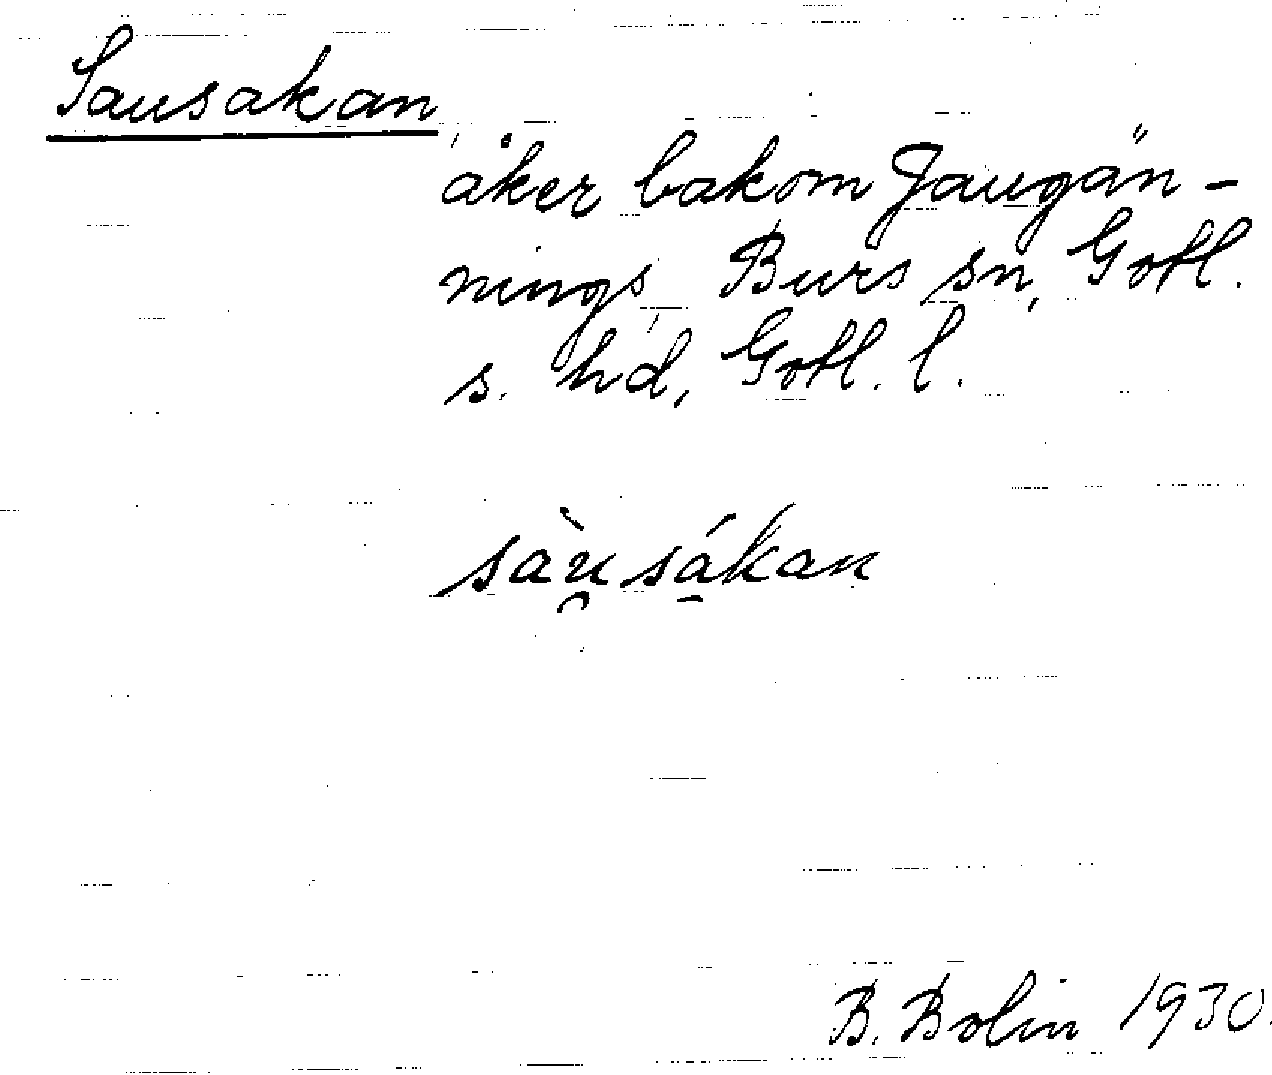 Sausakan,
åker bakom Jaugän-
nings, Burs sn, Gotl.
s. hd, Gotl. l.
sàu̯sá̱kan
B. Bolin 1930.